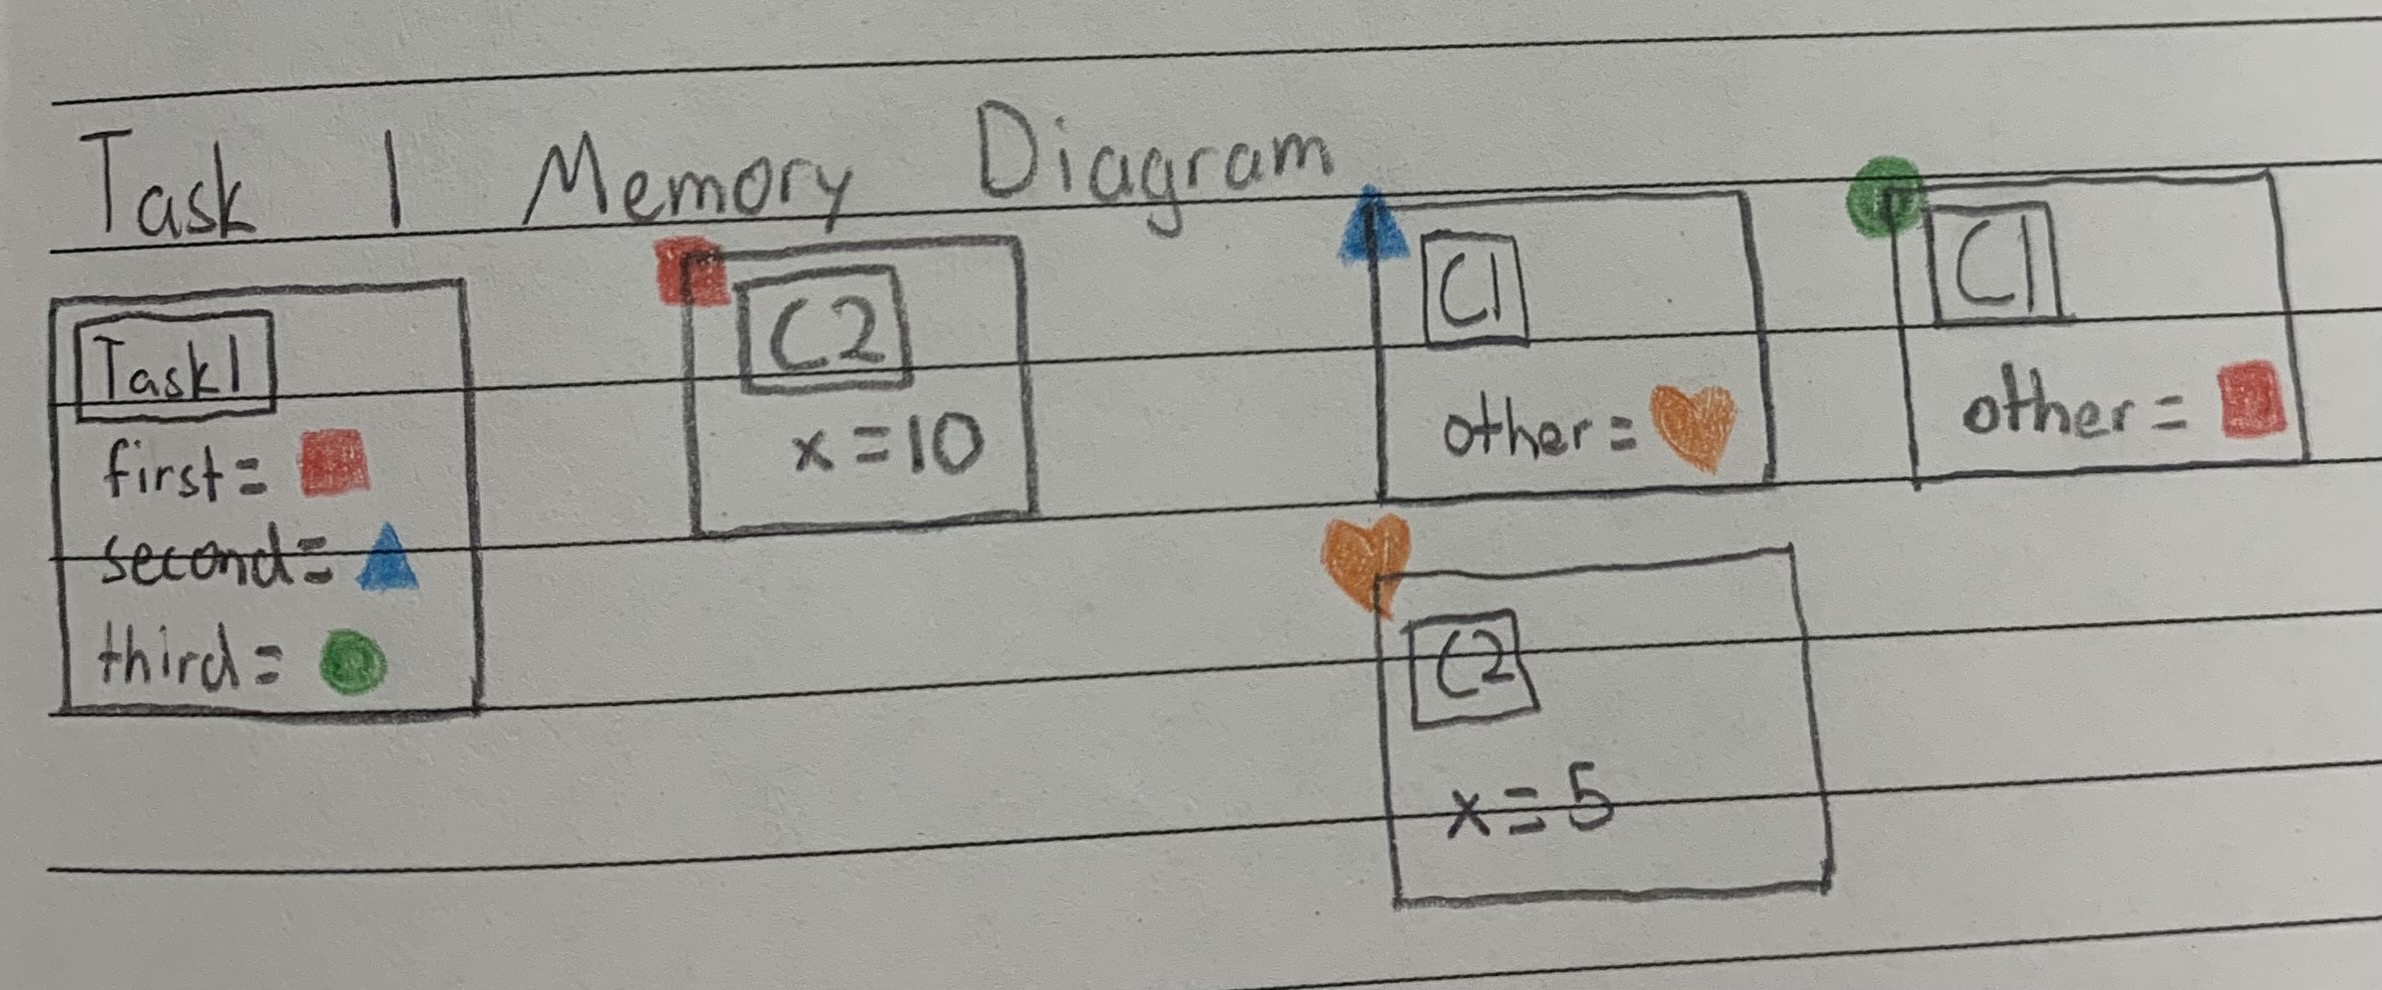 Task 1 Memory Diagram
Task1
first=
second=
third=
C2
x=10
C1
other=
C1
other=
C2
x=5